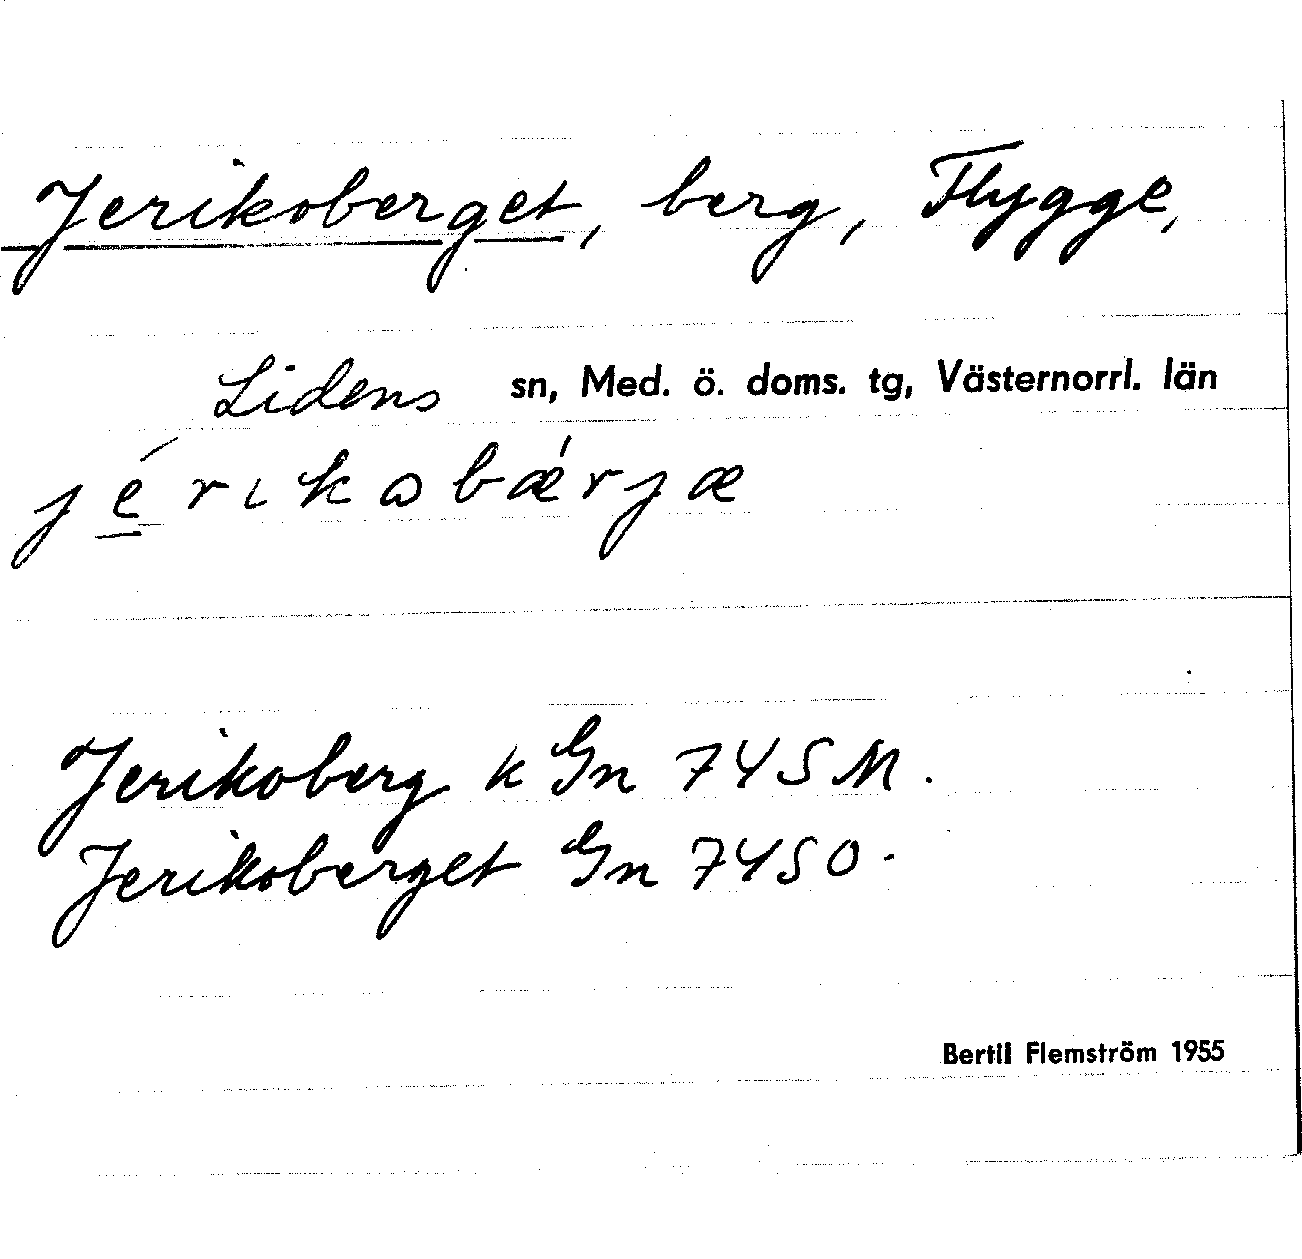 Jerikoberget, berg, Flygge,
Lidens sn, Med. ö. doms. tg, Västernorrl. län
jérikobǽrjæ
Jerikoberg k Gn 74SM.
Jerikoberget Gn 74SO.
Bertil Flemström 1955